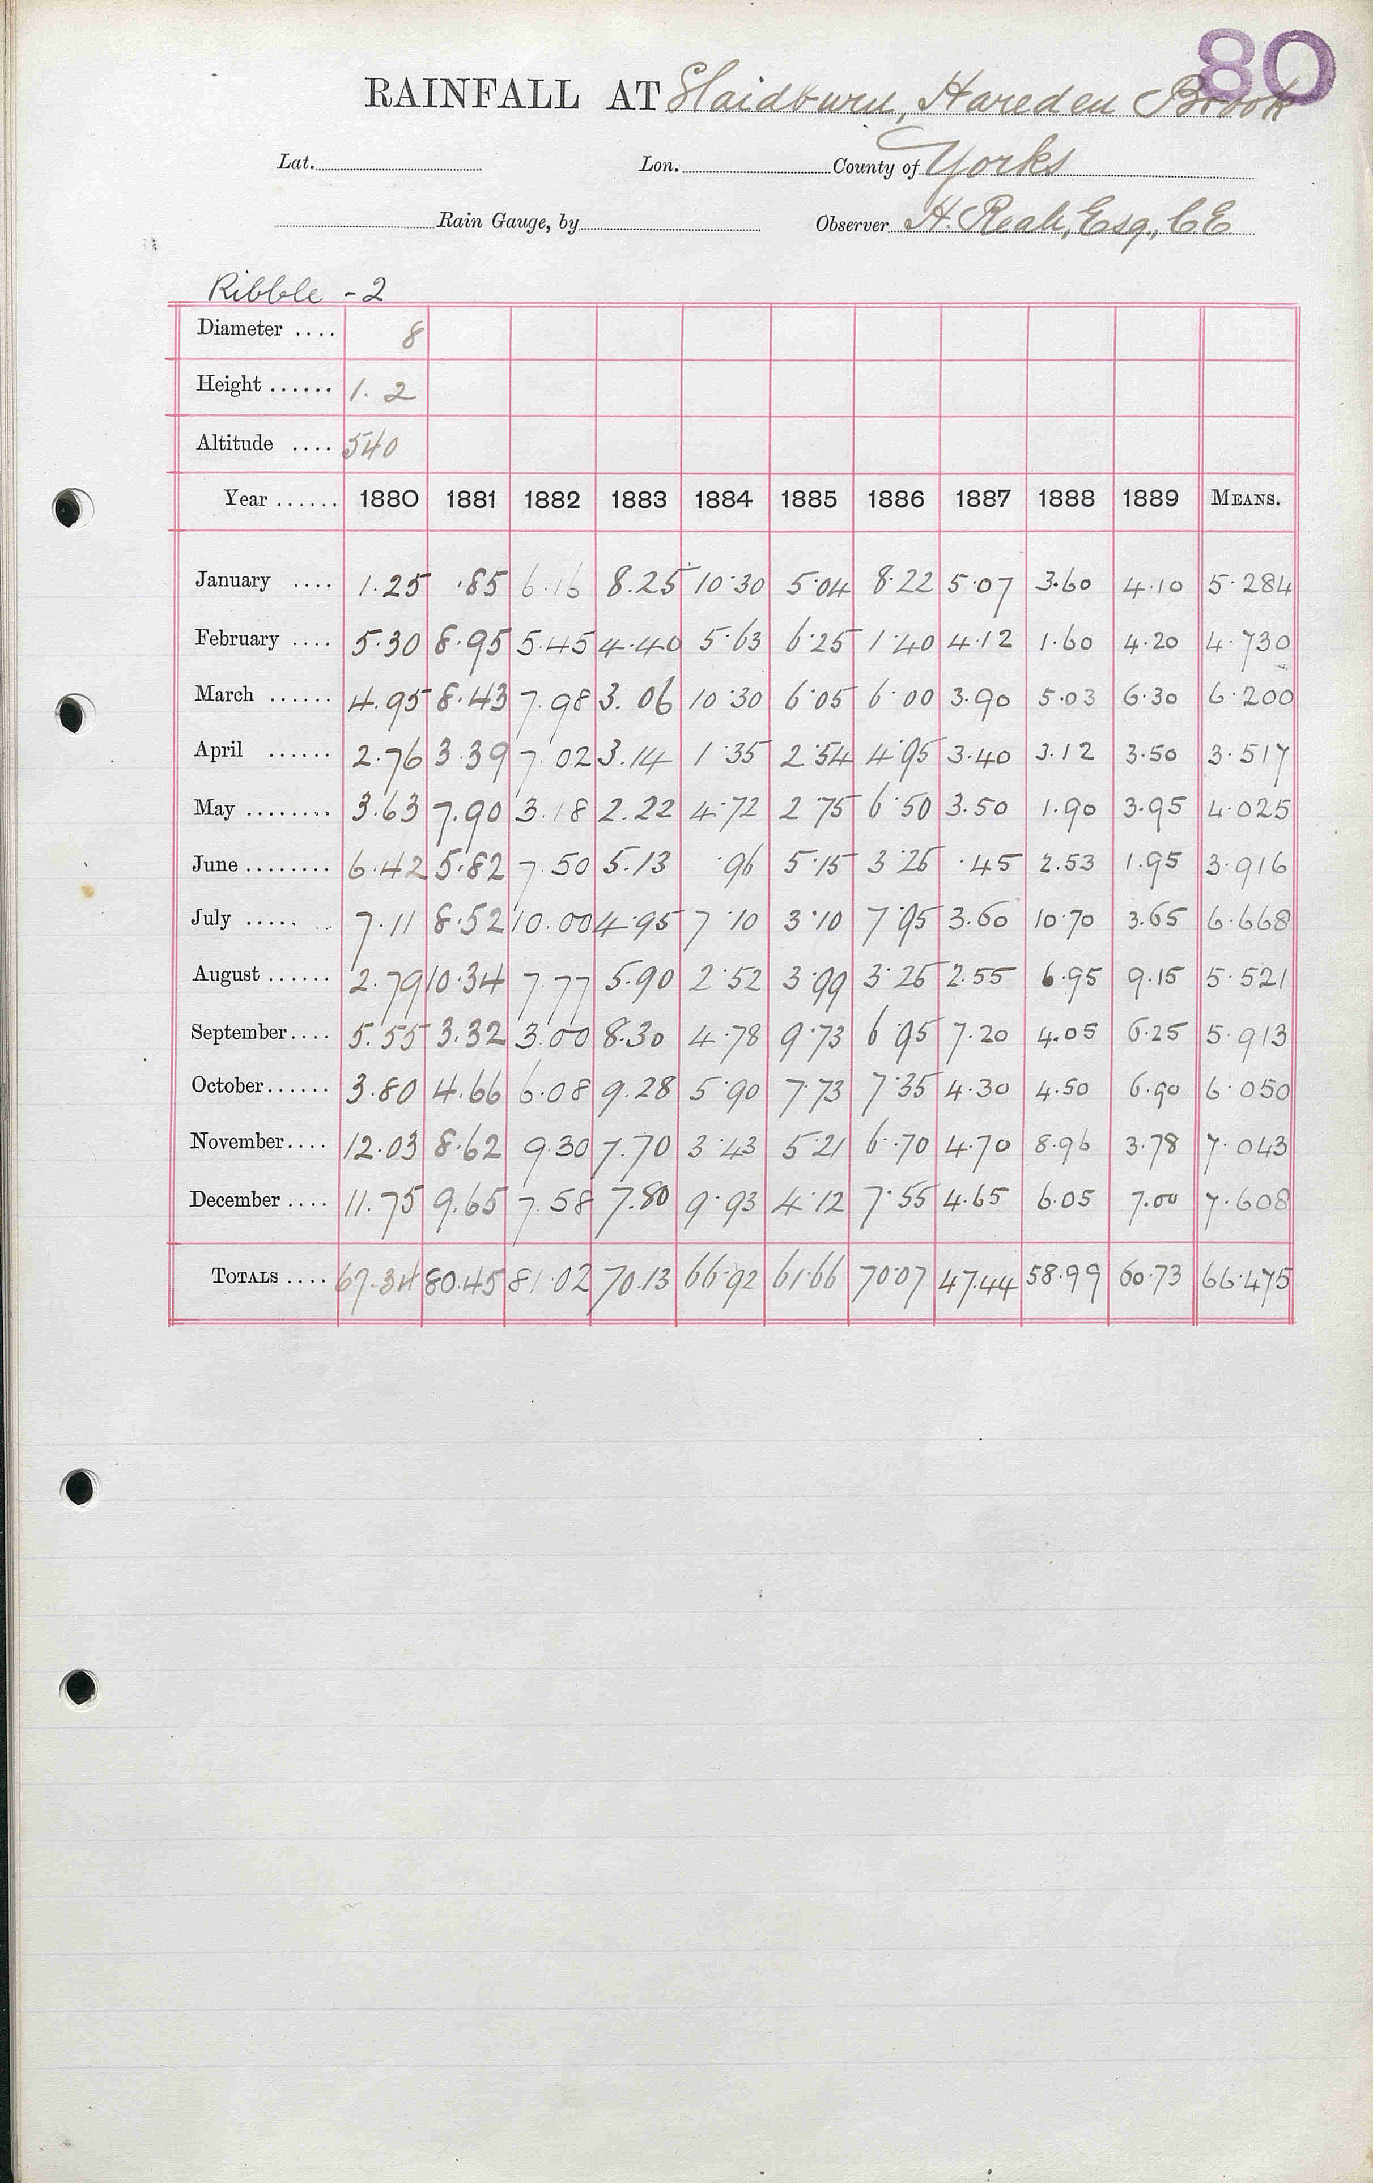 80
RAINFALL AT Slaidburn, Hareden Brook
Lat. Lon. County of Yorks
Rain Gauge, by Observer H. Esq., CE
Ribble - 2
Diameter .... 8
Height ...... 1. 2
Altitude .... 540
Year ...... 1880 1881 1882 1883 1884 1885 1886 1887 1888 1889 MEANS.
January .... 1.25 .85 6.16 8.25 10.30 5.04 8.22 5.07 3.60 4.10 5.284
February .... 5.30 8.95 5.45 4.40 5.63 6.25 1.40 4.12 1.60 4.20 4.730
March ...... 4.95 8.43 7.98 3.06 10.30 6.05 6.00 3.90 5.03 6.30 6.200
April ...... 2.76 3.39 7.02 3.14 1.35 2.54 4.95 3.40 3.12 3.50 3.517
May ........ 3.63 7.90 3.18 2.22 4.72 2.75 6.50 3.50 1.90 3.95 4.025
June ........ 6.42 5.82 7.50 5.13 .96 5.15 3.25 .45 2.53 1.95 3.916
July ..... 7.11 8.52 10.00 4.95 7.10 3.10 7.95 3.60 10.70 3.65 6.668
August ...... 2.79 10.34 7.77 5.90 2.52 3.99 3.25 2.55 6.95 9.15 5.521
September .... 5.55 3.32 3.00 8.30 4.78 9.73 6.95 7.20 4.05 6.25 5.913
October ...... 3.80 4.66 6.08 9.28 5.90 7.73 7.35 4.30 4.50 6.90 6.050
November .... 12.03 8.62 9.30 7.70 3.43 5.21 6.70 4.70 8.96 3.78 7.043
December .... 11.75 9.65 7.58 7.80 9.93 4.12 7.55 4.65 6.05 7.00 7.608
TOTALS .... 67.34 80.45 81.02 70.13 66.92 61.66 70.07 47.44 58.99 60.73 66.475